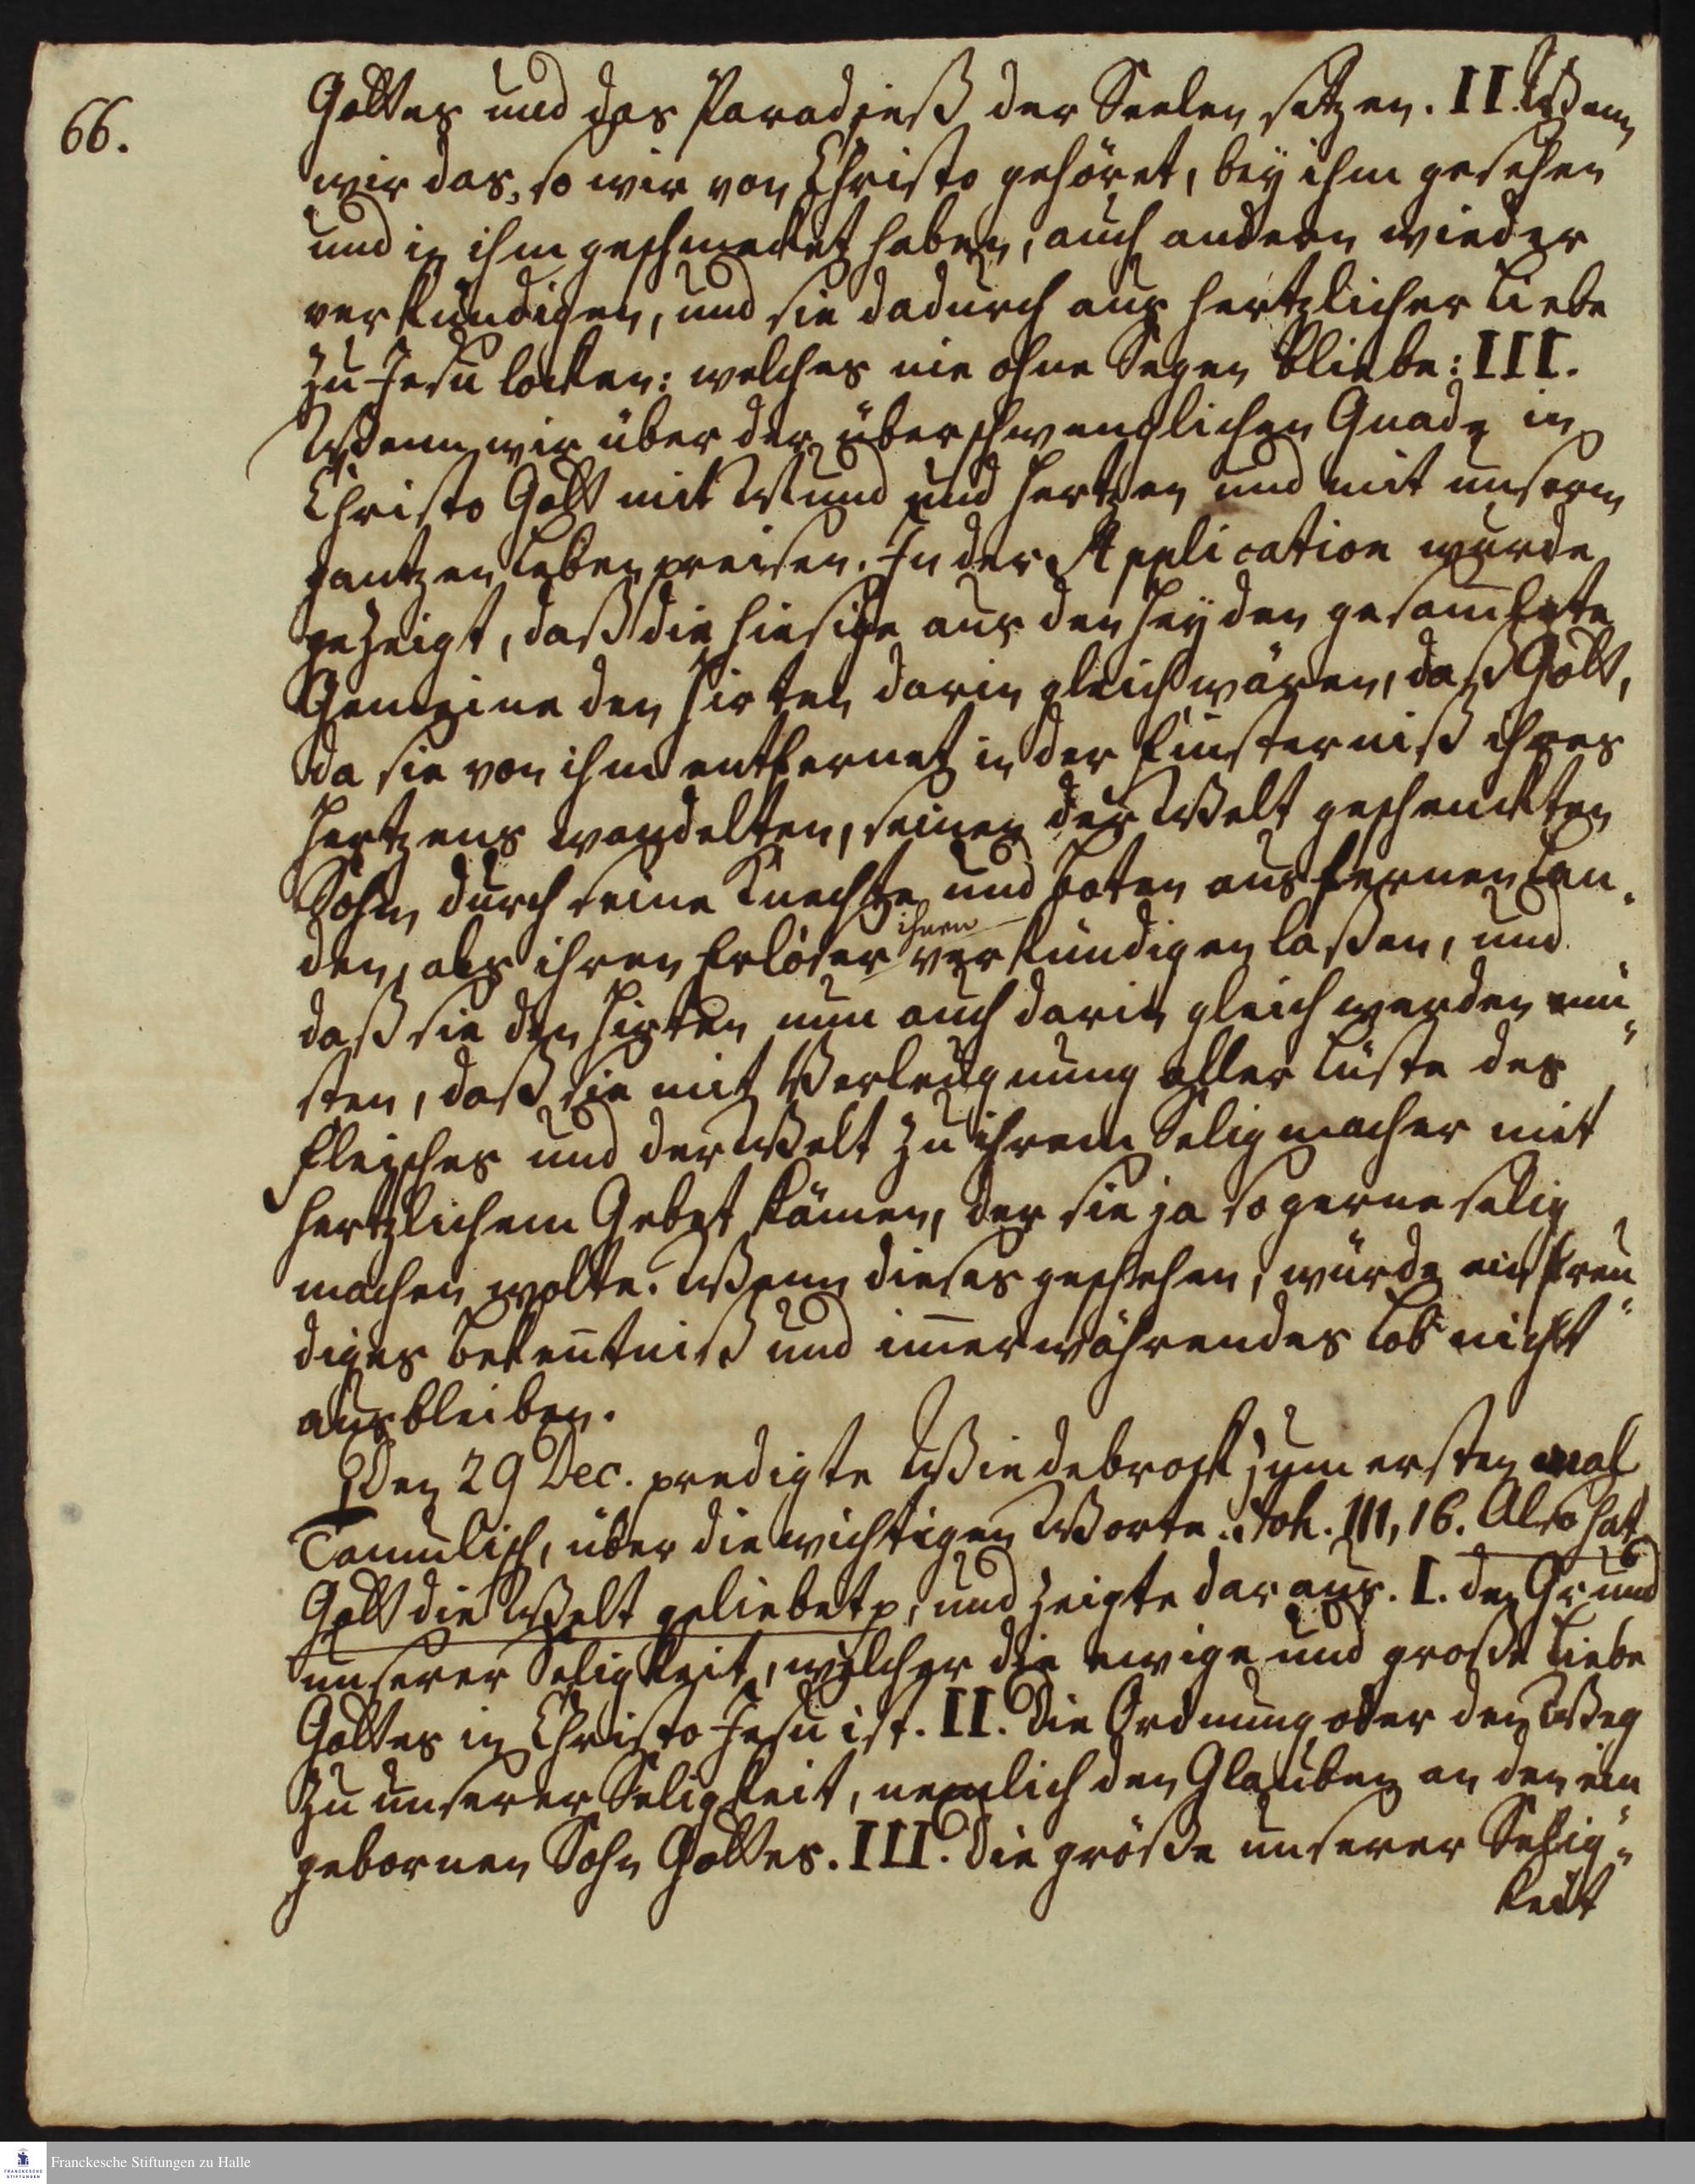 66.
Gottes und das Paradieß der Seelen setzen. II. Wenn
wir das, so wir von Christo gehöret, bey ihm gesehen
und in ihm geschmecket haben, auch andern wieder
verkündigen, und sie dadurch aus hertzlicher Liebe
zu Jesu locken: welches nie ohne Segen bliebe: III.
Wenn wir über der überschwenglichen Gnade in
Christo Gott mit Mund und Hertzen und mit unserm
gantzen Leben preisen. In der Application wurde
gezeigt, daß die hiesige aus den Heyden gesamlete
Gemeine den Hirten darin gleich wären, daß Gott,
da sie von ihm entfernet in der Finsterniß ihres
Hertzens wandelten, seinen der Welt geschenckten
Sohn durch seine Knechte und Boten aus fernen Lan-
den, als ihren Erlöser ihnen verkündigen laßen, und
daß sie den Hirten nun auch darin gleich werden mü-
sten, daß sie mit Verleugnung aller Lüste des
Fleisches und der Welt zu ihrem Seligmacher mit
hertzlichem Gebet kämen, der sie ja so gerne selig
machen wolte. Wenn dieses geschehen, würde ein freu-
diges Bekentniß und imerwährendes Lob nicht
ausbleiben.
Den 29 Dec. predigte Wiedebrock zum ersten mal
Tamulisch, über die wichtigen Worte Joh. III, 16. Also hat
Gott die Welt geliebet p, und zeigte daraus. I. den Grund
unserer Seligkeit, welcher die ewige und große Liebe
Gottes in Christo Jesu ist. II. Die Ordnung oder den Weg
zu unserer Seligkeit, nemlich den Glauben an den ein-
gebornen Sohn Gottes. III. Die größe unserer Selig-
keit
Franckesche Stiftungen zu Halle
FRANCKESCHE
STIFTUNGEN